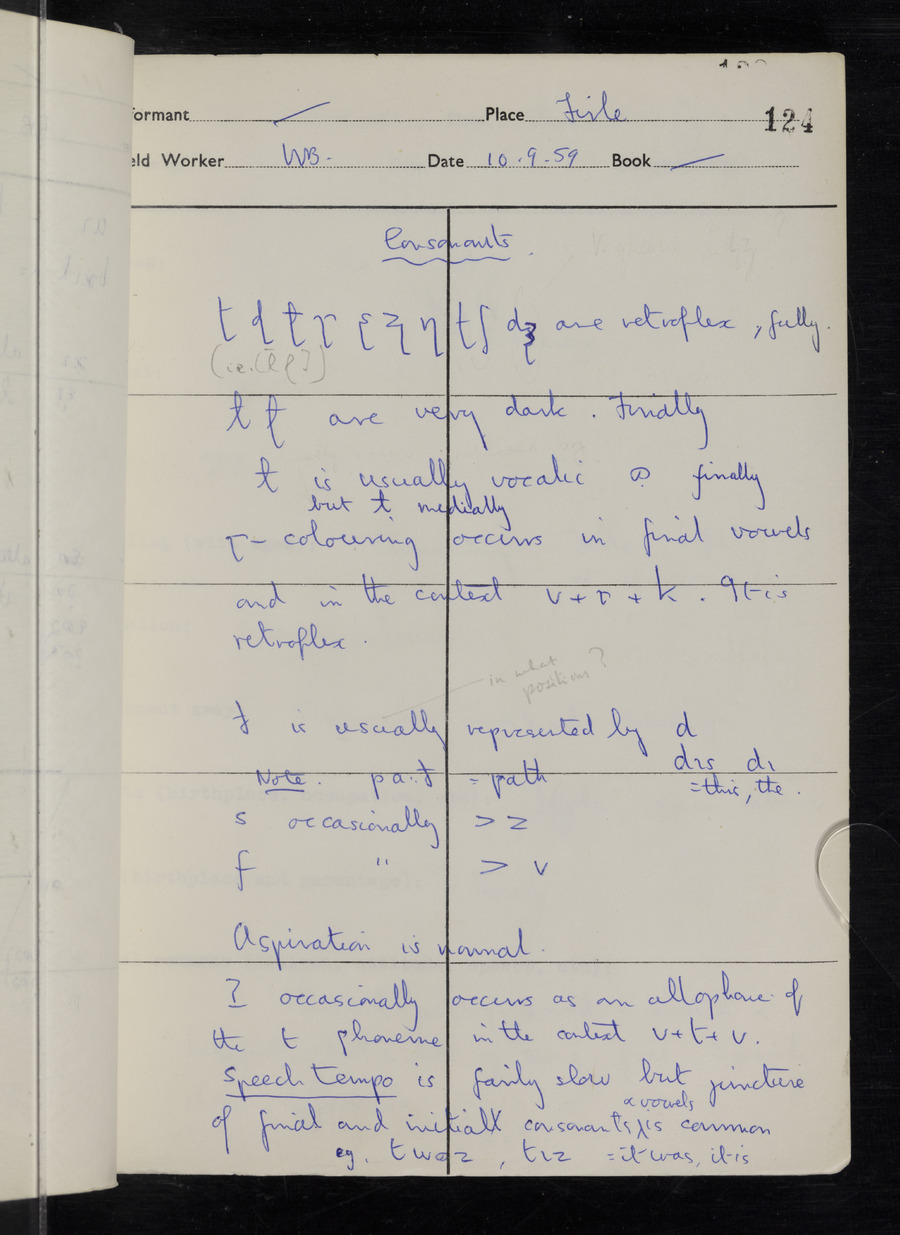 124
ormant Place Firle
eld Worker WB. Date 10.9.59 Book
Consonants.
are retroflex, fully.
(i.e.
are very dark. Finally
is usually vocalic finally
but ɫ medially
r-colouring occurs in final vowels
and in the context v + r + k. It is
retroflex.
in what
positions?
is usually represented by d
dɪs dɪ
Note: = path
= this, the.
s occasionally > z
f " > v
Aspiration is normal.
ʔ occasionally occurs as an allophone of
the t phoneme in the context v + t + v.
Speech tempo is fairly slow but juncture
& vowels
of final and initial consonants is common
eg. twɒz, tɪz = it was, it is